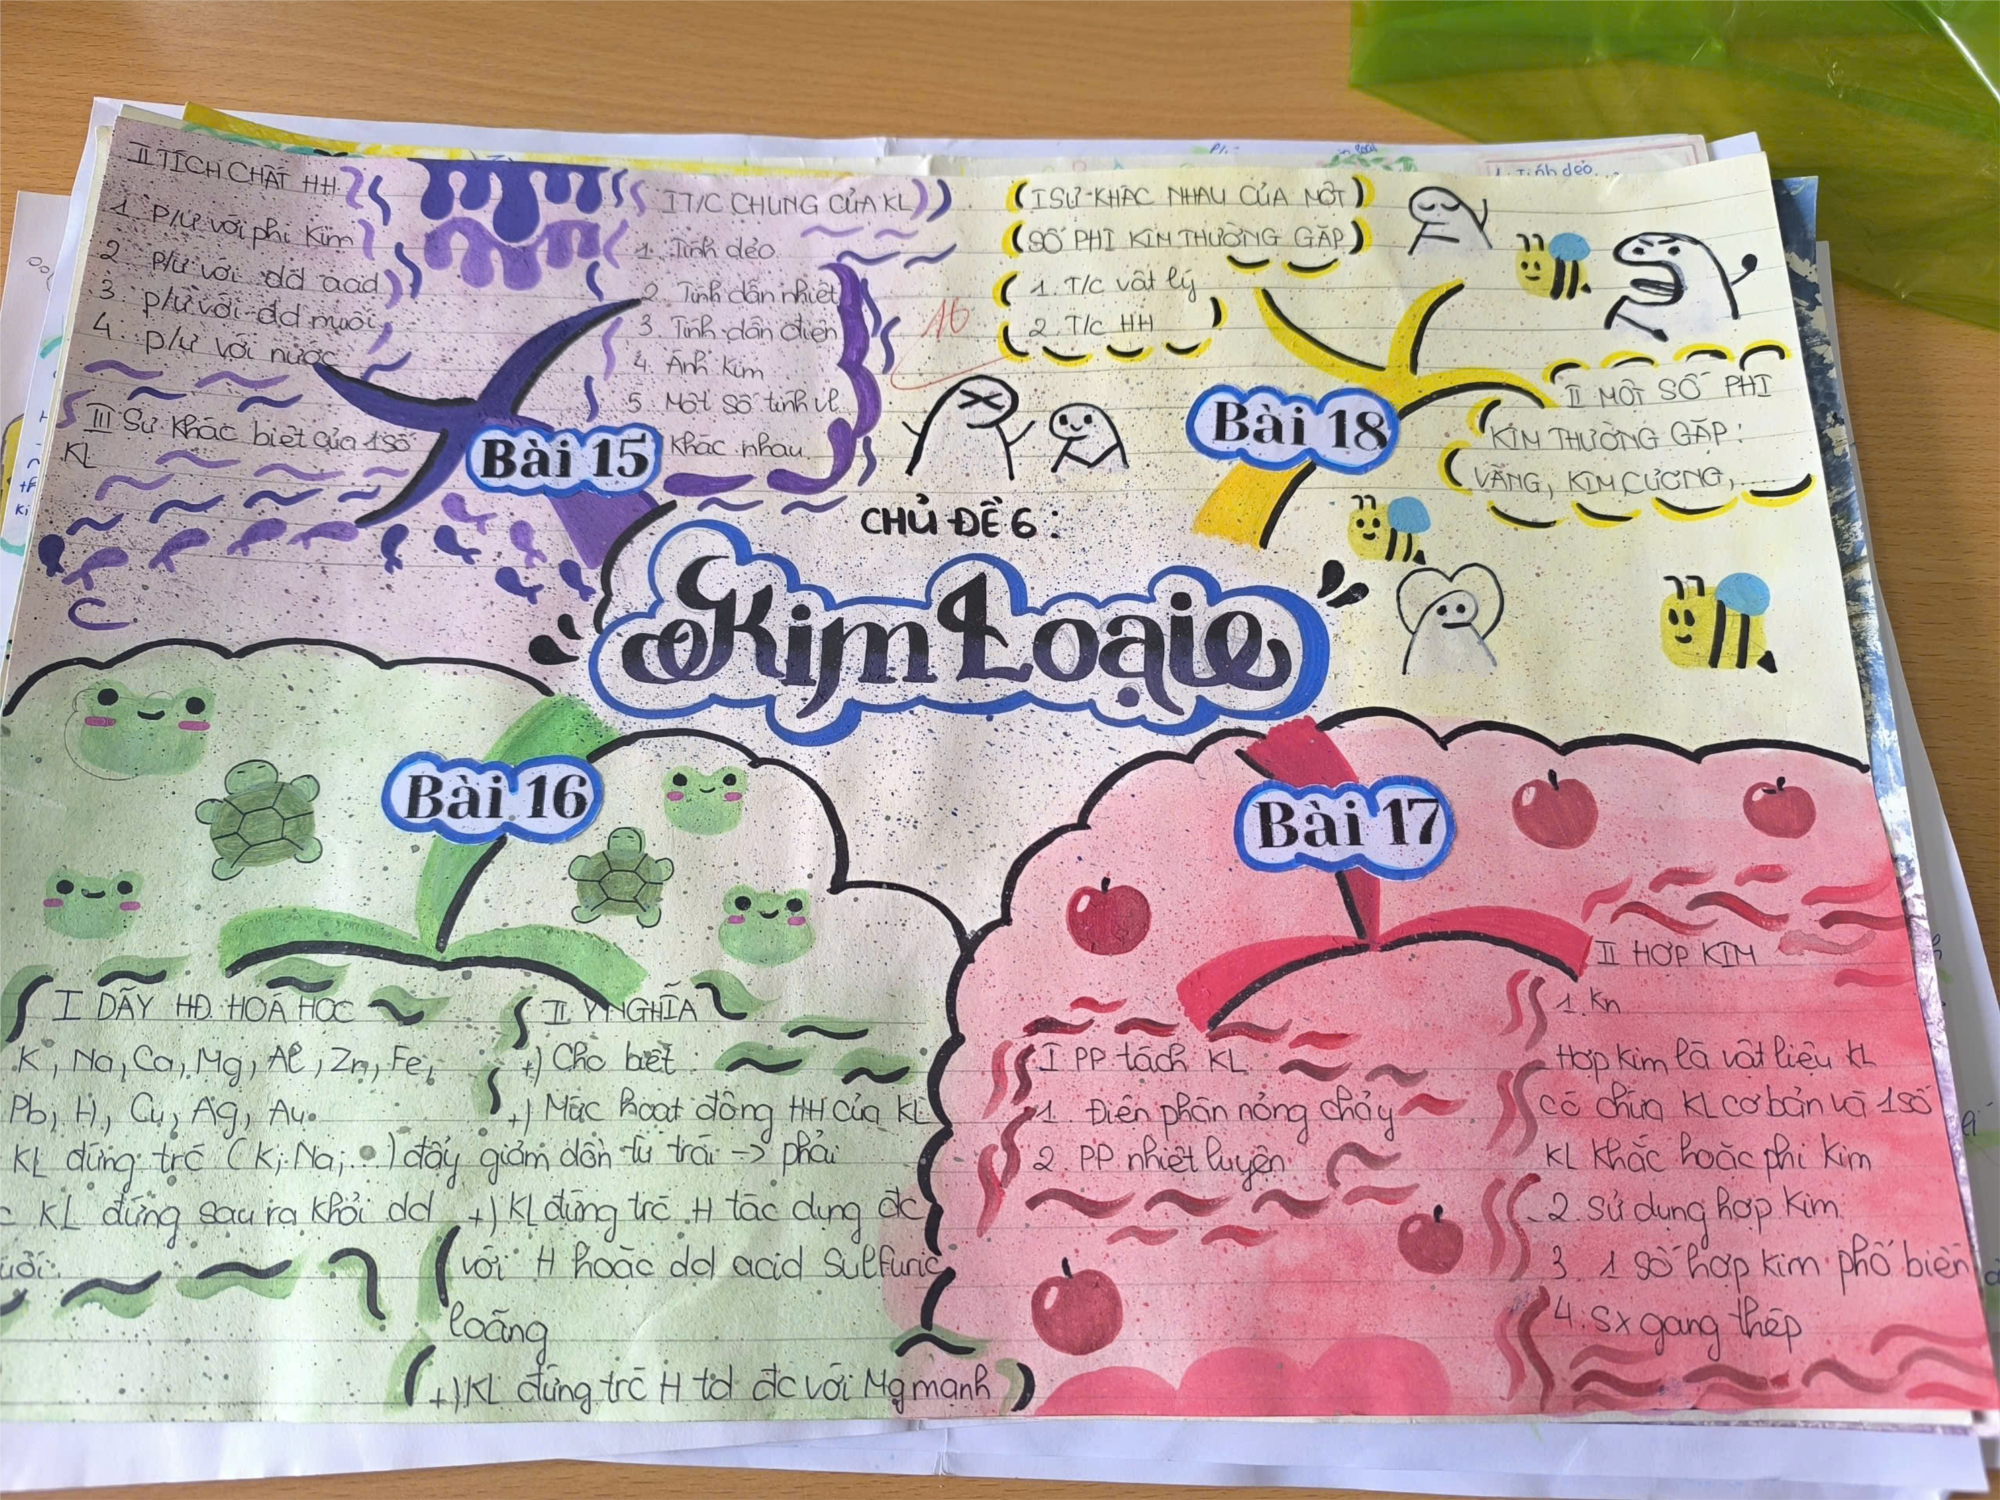 CHỦ ĐỀ 6:
Kim Loại
Bài 15
I T/C CHUNG CỦA KL
1. Tính dẻo
2. Tính dẫn nhiệt
3. Tính dẫn điện
4. Ánh kim
5. Một số tính vl
khác nhau
II TÍCH CHẤT HH
1. P/ư với phi kim
2 p/ư với dd acid
3. p/ư với dd muối
4. p/ư với nước
III Sự khác biệt của 1 số
KL
16
Bài 18
I SỰ KHÁC NHAU CỦA MỘT
SỐ PHI KIM THƯỜNG GẶP
1. T/c vật lý
2. T/c HH
II MỘT SỐ PHI
KIM THƯỜNG GẶP:
VÀNG, KIM CƯƠNG,....
Bài 16
I DÃY HĐ. HOÁ HỌC
K, Na, Ca, Mg, Al, Zn, Fe,
Pb, H, Cu, Ag, Au.
KL đứng trc (K; Na;...) đẩy
KL đứng sau ra khỏi dd
uối.
II. Ý NGHĨA
+) Cho biết
+) Mức hoạt động HH của KL
giảm dần từ trái -> phải
+) KL đứng trc H tác dụng đc
với H hoặc dd acid Sulfuric
loãng
+) KL đứng trc H td đc với Mg mạnh
Bài 17
I PP tách KL
1. Điện phân nóng chảy
2. PP nhiệt luyện
II HỢP KIM
1. Kn
Hợp kim là vật liệu KL
có chứa KL cơ bản và 1 số
KL khác hoặc phi kim
2. Sử dụng hợp kim
3. 1 số hợp kim phổ biến
4. Sx gang thép
1. Tính dẻo...